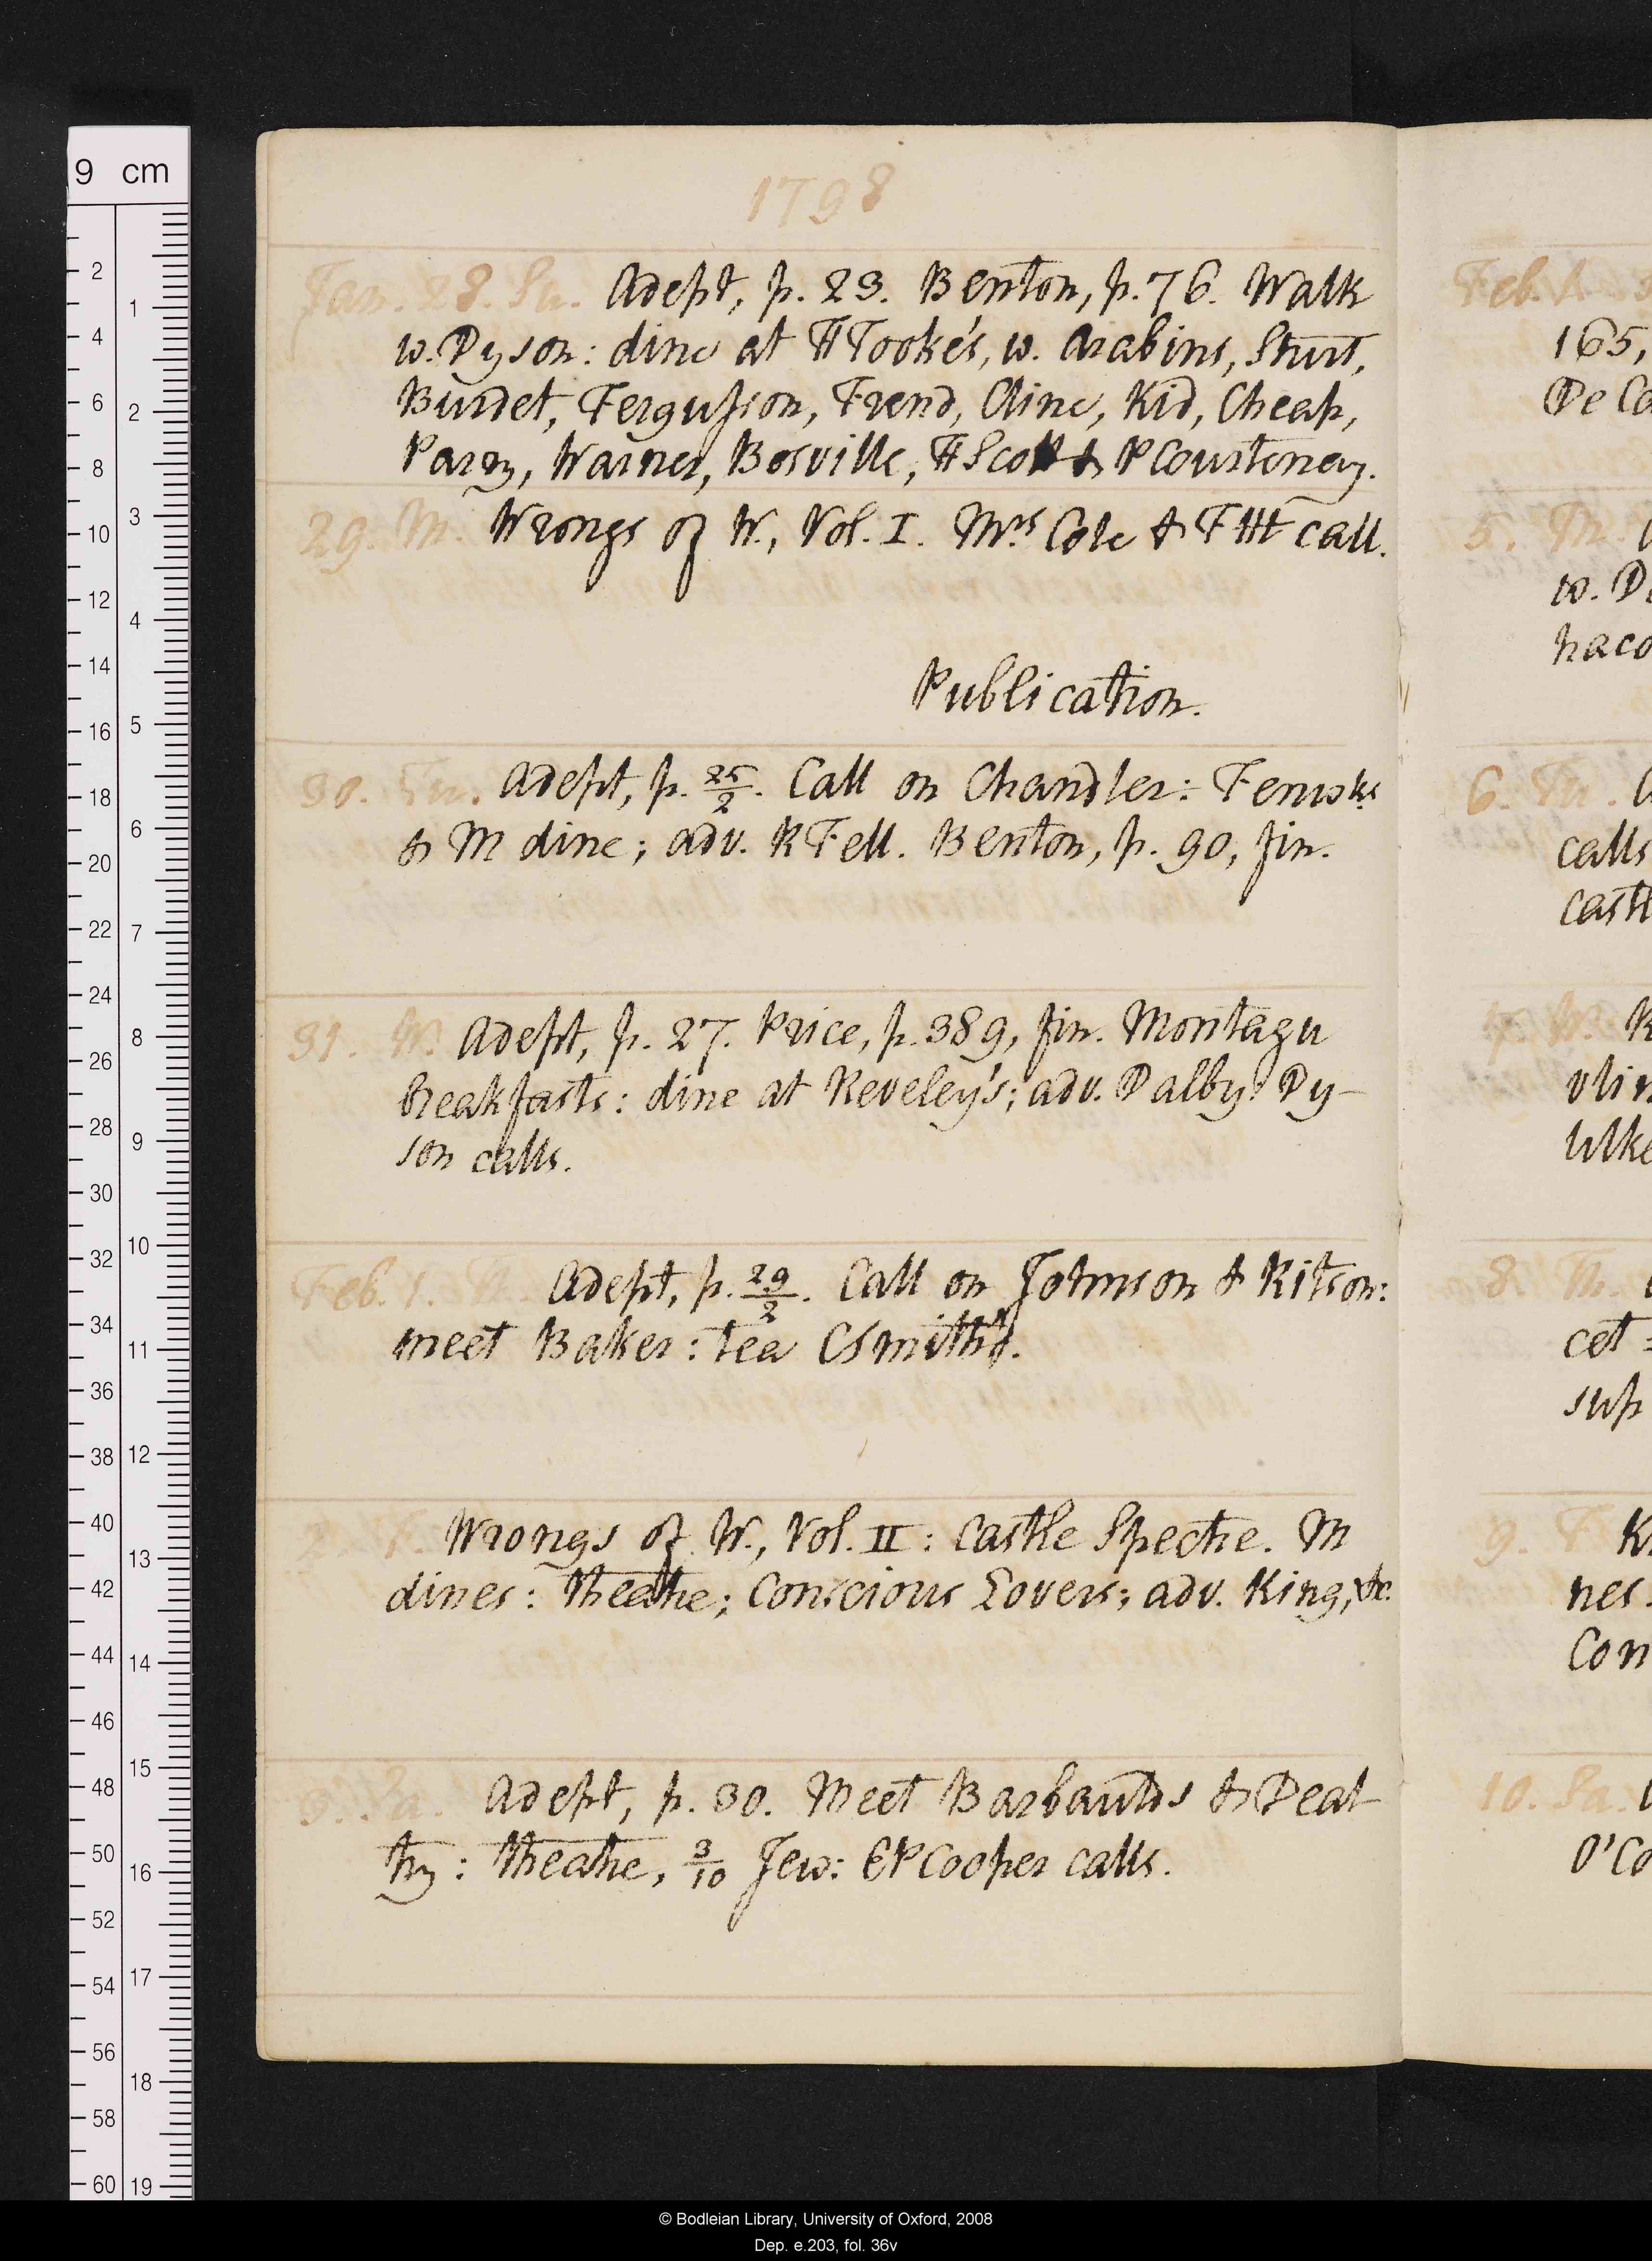 1798
Jan. 28. Su. Adept, p. 23. Benton, p. 76. Walk
w. Dyson: dine at HTooke's, w. Arabins, Sturt,
Burdet, Fergusson, Frend, Cline, Kid, Cheap,
Parry, Warner, Bosville, HScott & PCourtenay.
29. M. Wrongs of W., Vol. I. Mrs Cole & FHt call.
Publication.
30. Tu. Adept, p. 25/2. Call on Chandler: Fenwks
& M dine; adv. RFell. Benton, p. 90, fin.
31. W. Adept, p. 27. Price, p. 389, fin. Montagu
breakfasts: dine at Reveley's; adv. Dalby. Dy-
son calls.
Feb. 1. Th. Adept, p. 29/2. Call on Johnson & Ritson:
meet Baker: tea CSmith's.
2. F. Wrongs of W., Vol. II: Castle Spectre. M
dines: theatre; Conscious Lovers; adv. King, &c.
3. Sa. Adept, p. 30. Meet Barbaulds & Beat
ty: theatre, 3/10 Jew: EPCooper calls.
Feb. 4.
165,
De Ca
5. M.
w. D
naco
6. Tu.
calls
castl
7. W. R
vlin
Ulke
8. Th.
cet
sup
9. F. K
nes.
Con
10. Sa.
O'Co
9 cm
2
4
6
8
10
12
14
16
18
20
22
24
26
28
30
32
34
36
38
40
42
44
46
48
50
52
54
56
58
60
1
2
3
4
5
6
7
8
9
10
11
12
13
14
15
16
17
18
19
© Bodleian Library, University of Oxford, 2008
Dep. e.203, fol. 36v